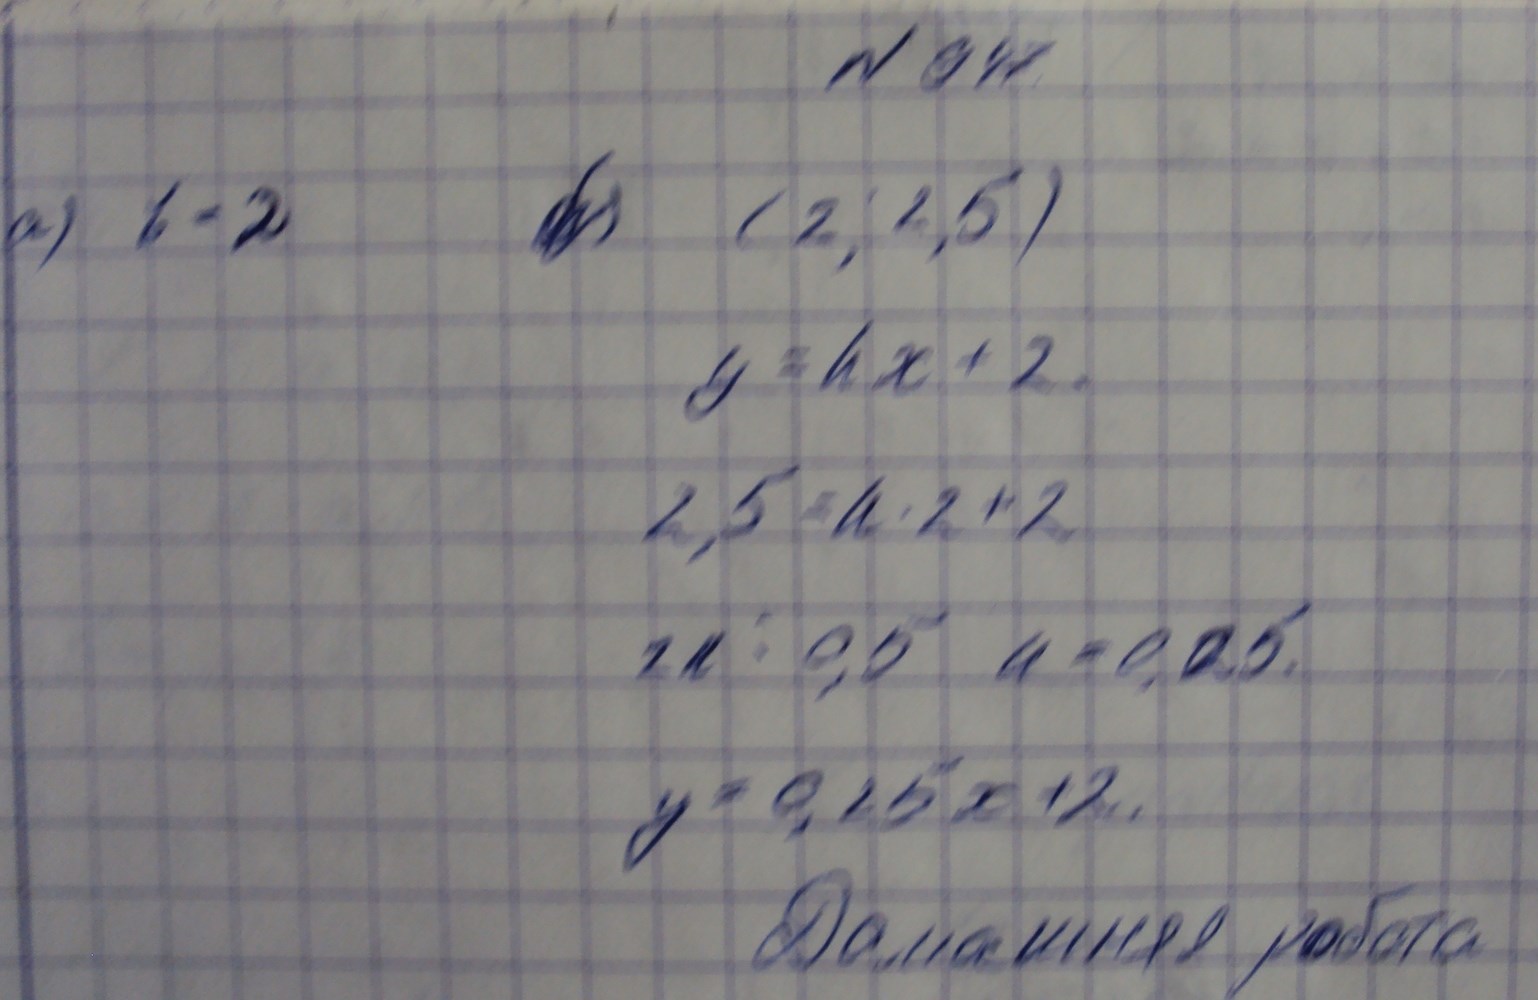 а) b = 2 б) (2; 2,5)
y = kx + 2.
2,5 = k · 2 + 2
2k = 0,5 k = 0,25.
y = 0,25x + 2.
Домашняя работа